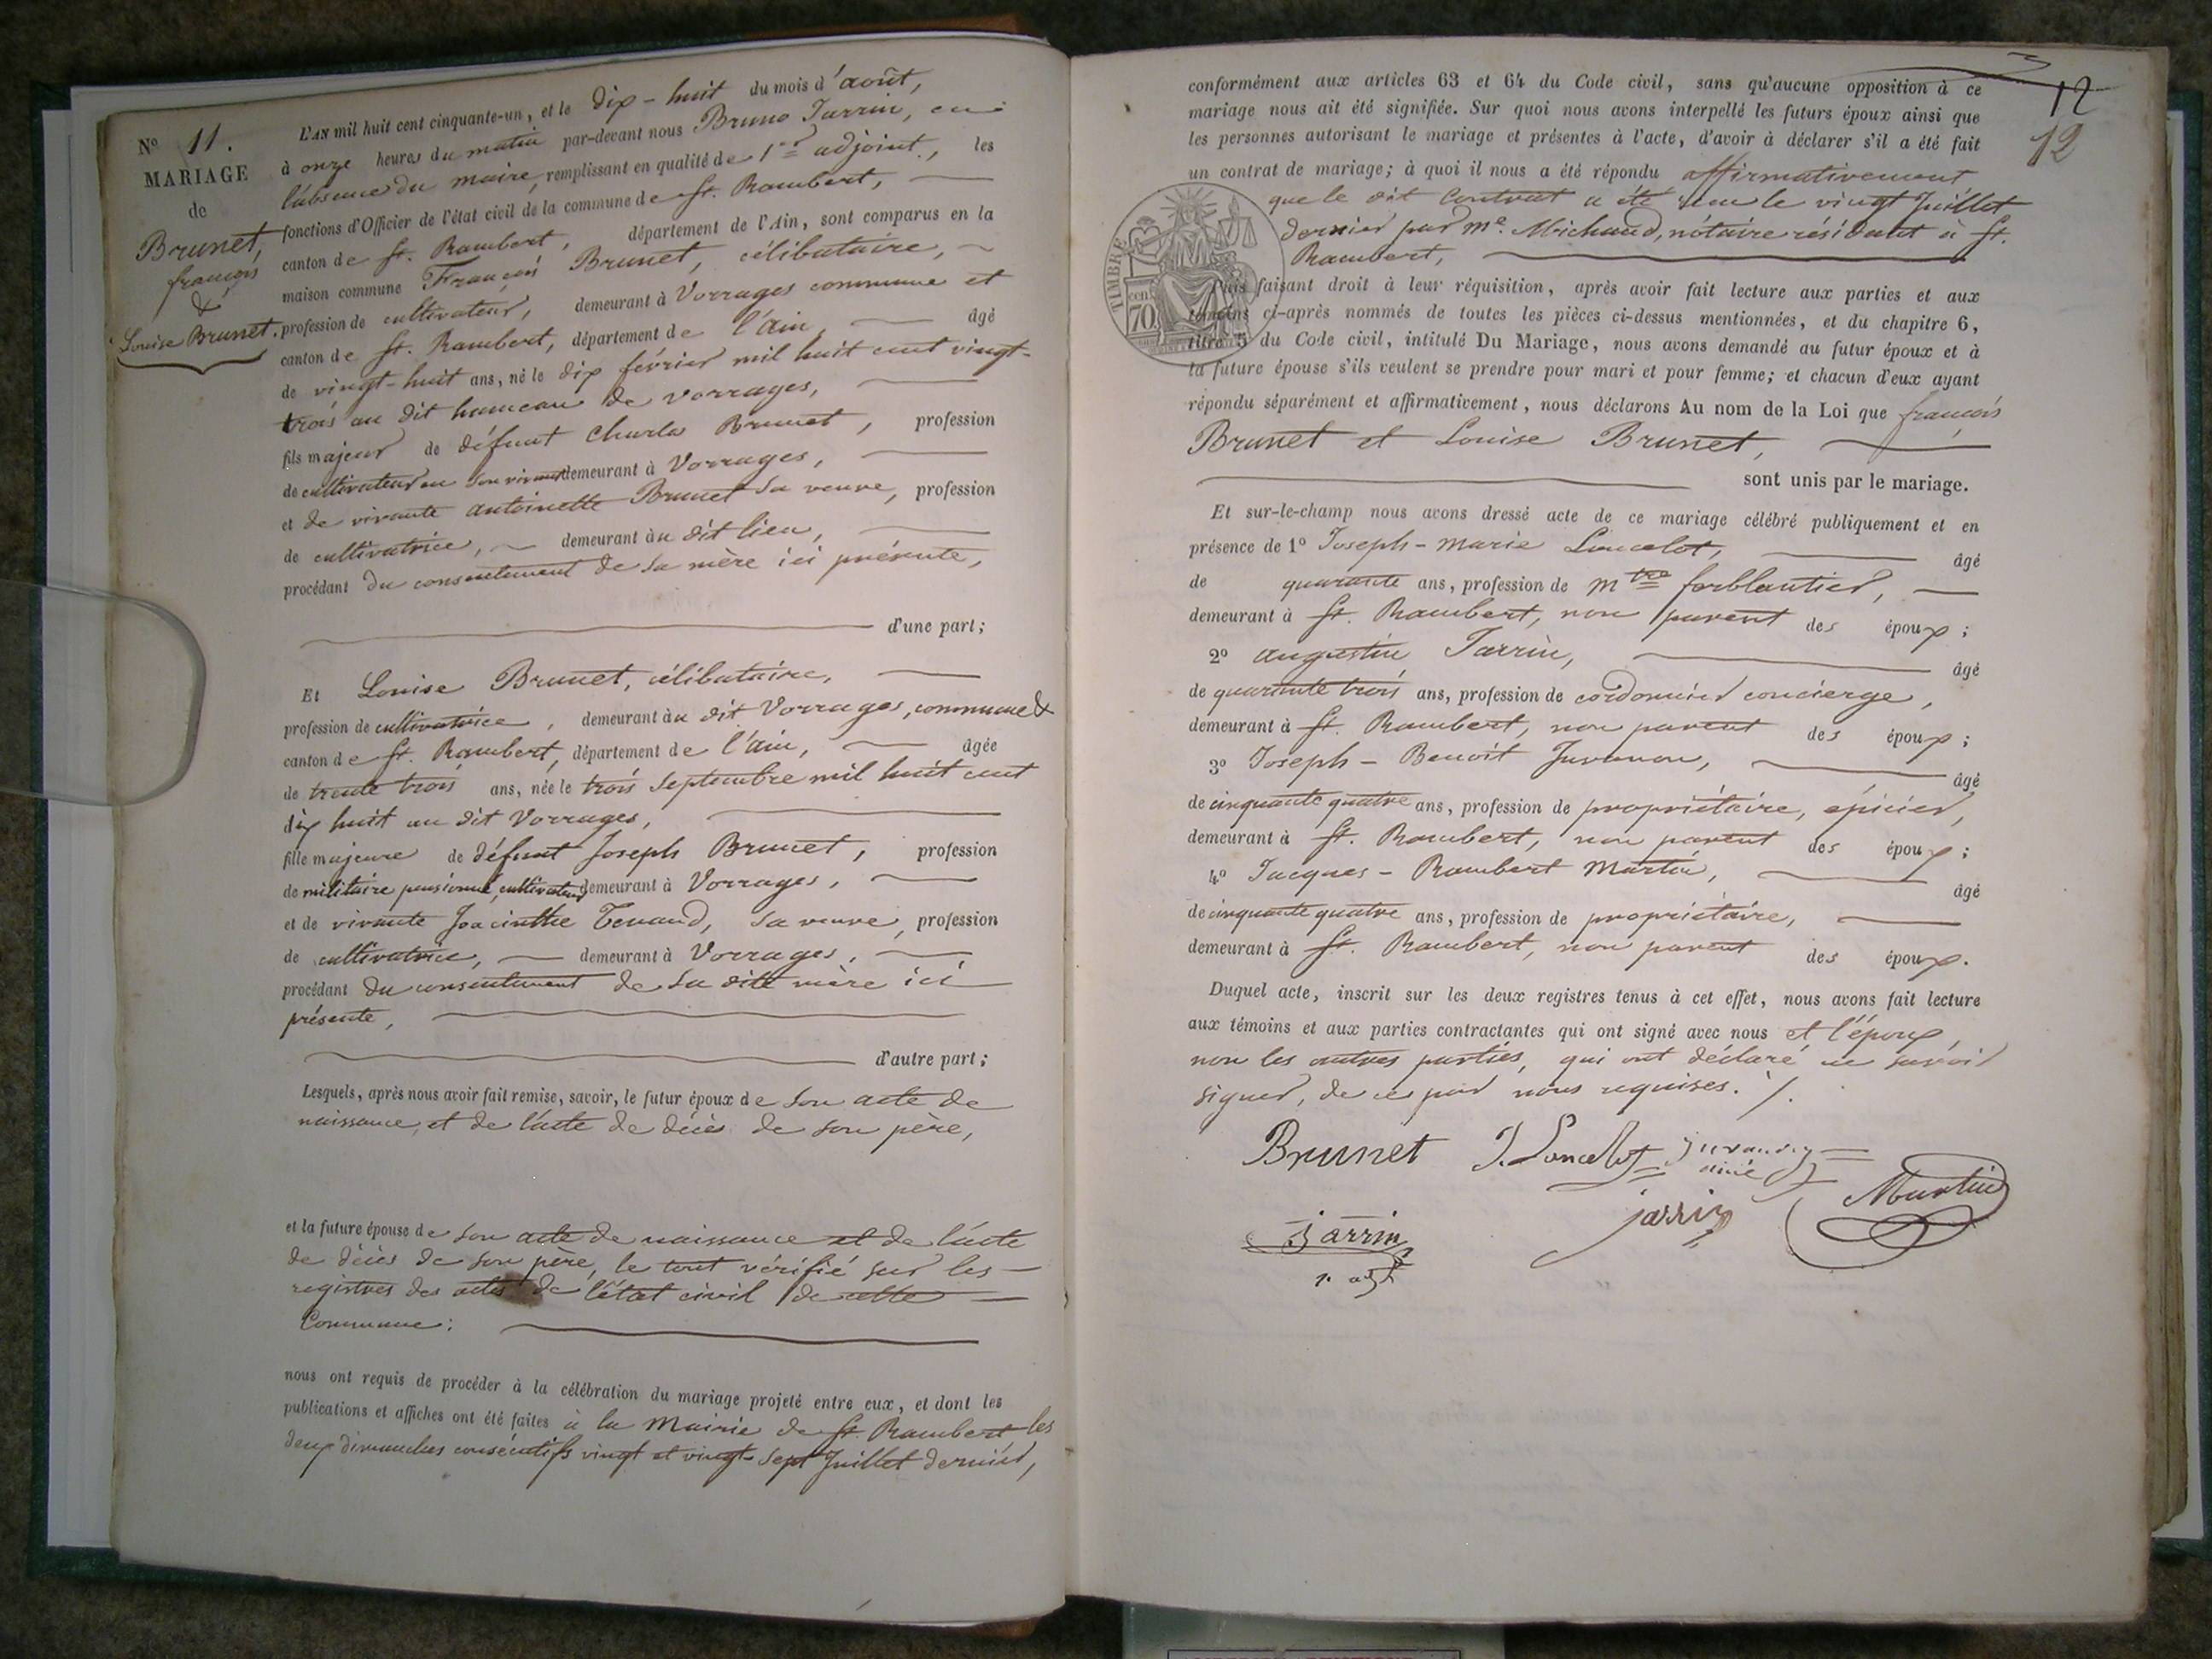 N° 11.
MARIAGE
de
Brunet,
françois
&
Louise Brunet.
L'AN mil huit cent cinquante-un, et le dix-huit du mois d'août,
à onze heures du matin par-devant nous Bruno Jarrin, en
l'absence du maire, remplissant en qualité de 1er adjoint, les
fonctions d'Officier de l'état civil de la commune de St. Rambert,
canton de St. Rambert, département de l'Ain, sont comparus en la
maison commune François Brunet, célibataire,
profession de cultivateur, demeurant à Vorrages commune et
canton de St. Rambert, département de l'ain, âgé
de vingt-huit ans, né le dix février mil huit cent vingt-
trois au dit hameau de vorrages,
fils majeur de défunt Charles Brunet, profession
de cultivateur en son vivant demeurant à Vorrages,
et de vivante antoinette Brunet sa veuve, profession
de cultivatrice, demeurant au dit lieu,
procédant du consentement de sa mère ici présente,
d'une part;
Et Louise Brunet, célibataire,
profession de cultivatrice, demeurant au dit Vorrages, commune &
canton de St. Rambert, département de l'ain, âgée
de trente trois ans, née le trois septembre mil huit cent
dix huit au dit Vorrages,
fille majeure de défunt Joseph Brunet, profession
de militaire pensionné, cultivateur demeurant à Vorrages,
et de vivante Joacinthe Tenand, sa veuve, profession
de cultivatrice, demeurant à Vorrages,
procédant du consentement de sa dite mère ici
présente,
d'autre part;
Lesquels, après nous avoir fait remise, savoir, le futur époux de son acte de
naissance, et de l'acte de décès de son père,
et la future épouse de son acte de naissance et de l'acte
de décès de son père, le tout vérifié sur les
registres des actes de l'état civil de cette
Commune:
nous ont requis de procéder à la célébration du mariage projeté entre eux, et dont les
publications et affiches ont été faites à la Mairie de St. Rambert les
deux dimanches consécutifs vingt et vingt-sept Juillet dernier,
12
12
conformément aux articles 63 et 64 du Code civil, sans qu'aucune opposition à ce
mariage nous ait été signifiée. Sur quoi nous avons interpellé les futurs époux ainsi que
les personnes autorisant le mariage et présentes à l'acte, d'avoir à déclarer s'il a été fait
un contrat de mariage; à quoi il nous a été répondu affirmativement
que le dit Contrat a été reçu le vingt Juillet
dernier par me. Michaud, notaire résidant à St.
Rambert,
TIMBRE
cen.
70
Puis faisant droit à leur réquisition, après avoir fait lecture aux parties et aux
témoins ci-après nommés de toutes les pièces ci-dessus mentionnées, et du chapitre 6,
titre 5 du Code civil, intitulé Du Mariage, nous avons demandé au futur époux et à
la future épouse s'ils veulent se prendre pour mari et pour femme; et chacun d'eux ayant
répondu séparément et affirmativement, nous déclarons Au nom de la Loi que françois
Brunet et Louise Brunet,
sont unis par le mariage.
Et sur-le-champ nous avons dressé acte de ce mariage célébré publiquement et en
présence de 1° Joseph-Marie Loncelot, âgé
de quarante ans, profession de mtre ferblantier,
demeurant à St. Rambert, non parent des époux;
2° augustin Jarrin, âgé
de quarante trois ans, profession de cordonnier concierge,
demeurant à St. Rambert, non parent des époux;
3° Joseph-Benoit Juvanon, âgé
de cinquante quatre ans, profession de propriétaire, épicier,
demeurant à St. Rambert, non parent des époux;
4° Jacques-Rambert Martin, âgé
de cinquante quatre ans, profession de propriétaire,
demeurant à St. Rambert, non parent des époux.
Duquel acte, inscrit sur les deux registres tenus à cet effet, nous avons fait lecture
aux témoins et aux parties contractantes qui ont signé avec nous et l'époux
non les autres parties, qui ont déclaré ne savoir
signer, de ce par nous requises. /.
Brunet J. Loncelot juvanon
ainé
jarrin Martin
Jarrin
1er adjt